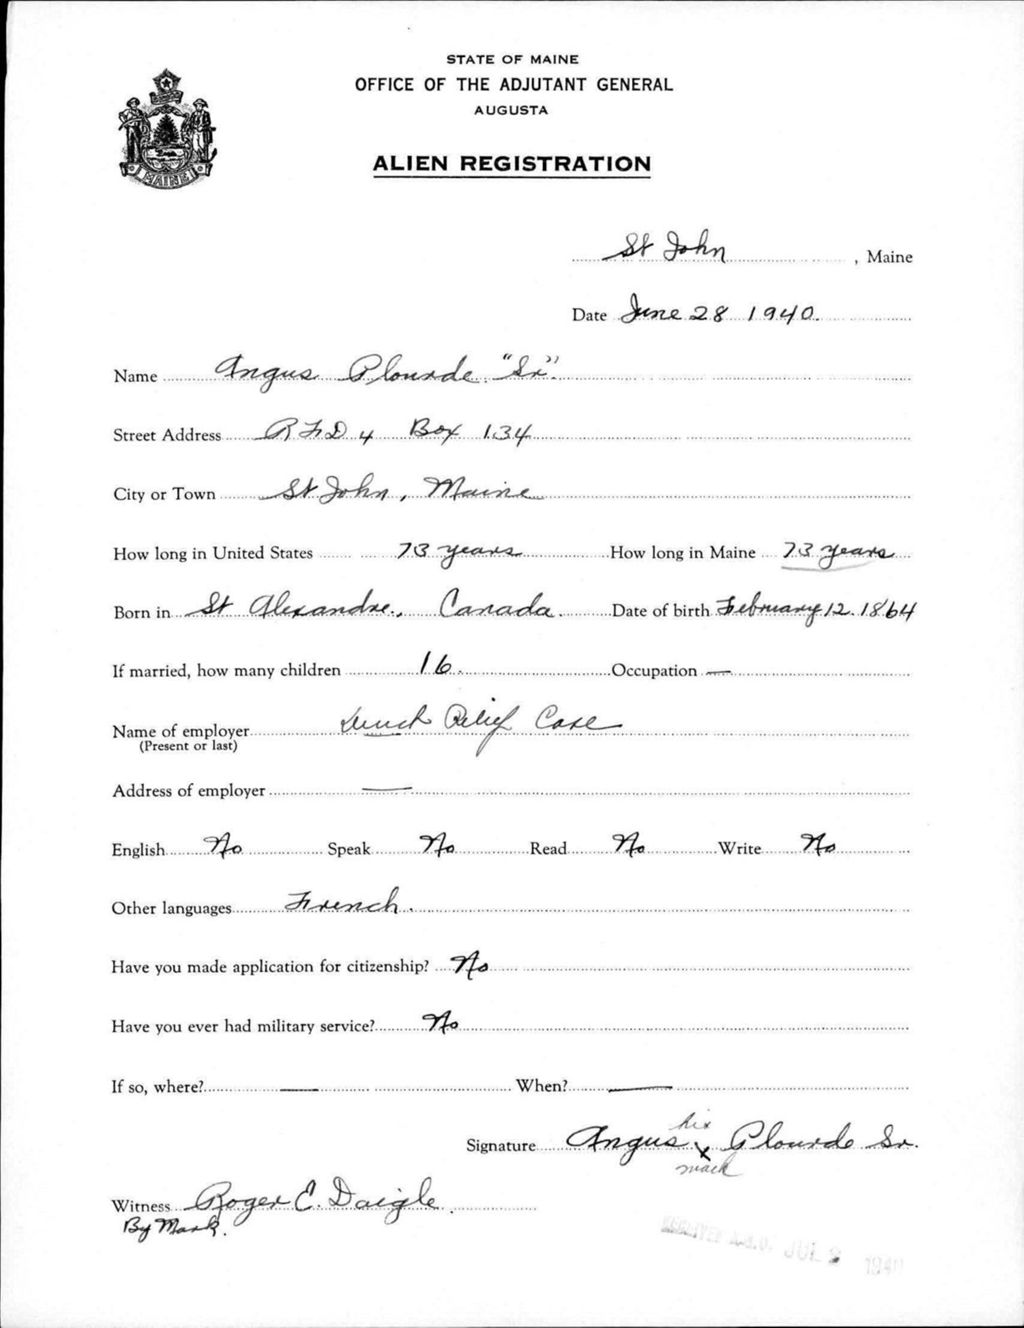 STATE OF MAINE
OFFICE OF THE ADJUTANT GENERAL
AUGUSTA
MAINE
ALIEN REGISTRATION
St John, Maine
Date June 28 1940.
Name Angus Plourde "Sr".
Street Address R F D 4 Box 134
City or Town St John, Maine
How long in United States 73 years How long in Maine 73 years
Born in St Alexandre, Canada Date of birth February 12. 1864
If married, how many children 16. Occupation —
Name of employer Relief Case
(Present or last)
Address of employer —
English No Speak No Read No Write No
Other languages French.
Have you made application for citizenship? No
Have you ever had military service? No
If so, where? — When? —
his
Signature Angus x Plourde Sr.
mark
Witness Roger E. Daigle
By Mark.
RECEIVED A.G.O. JUL 2 1940